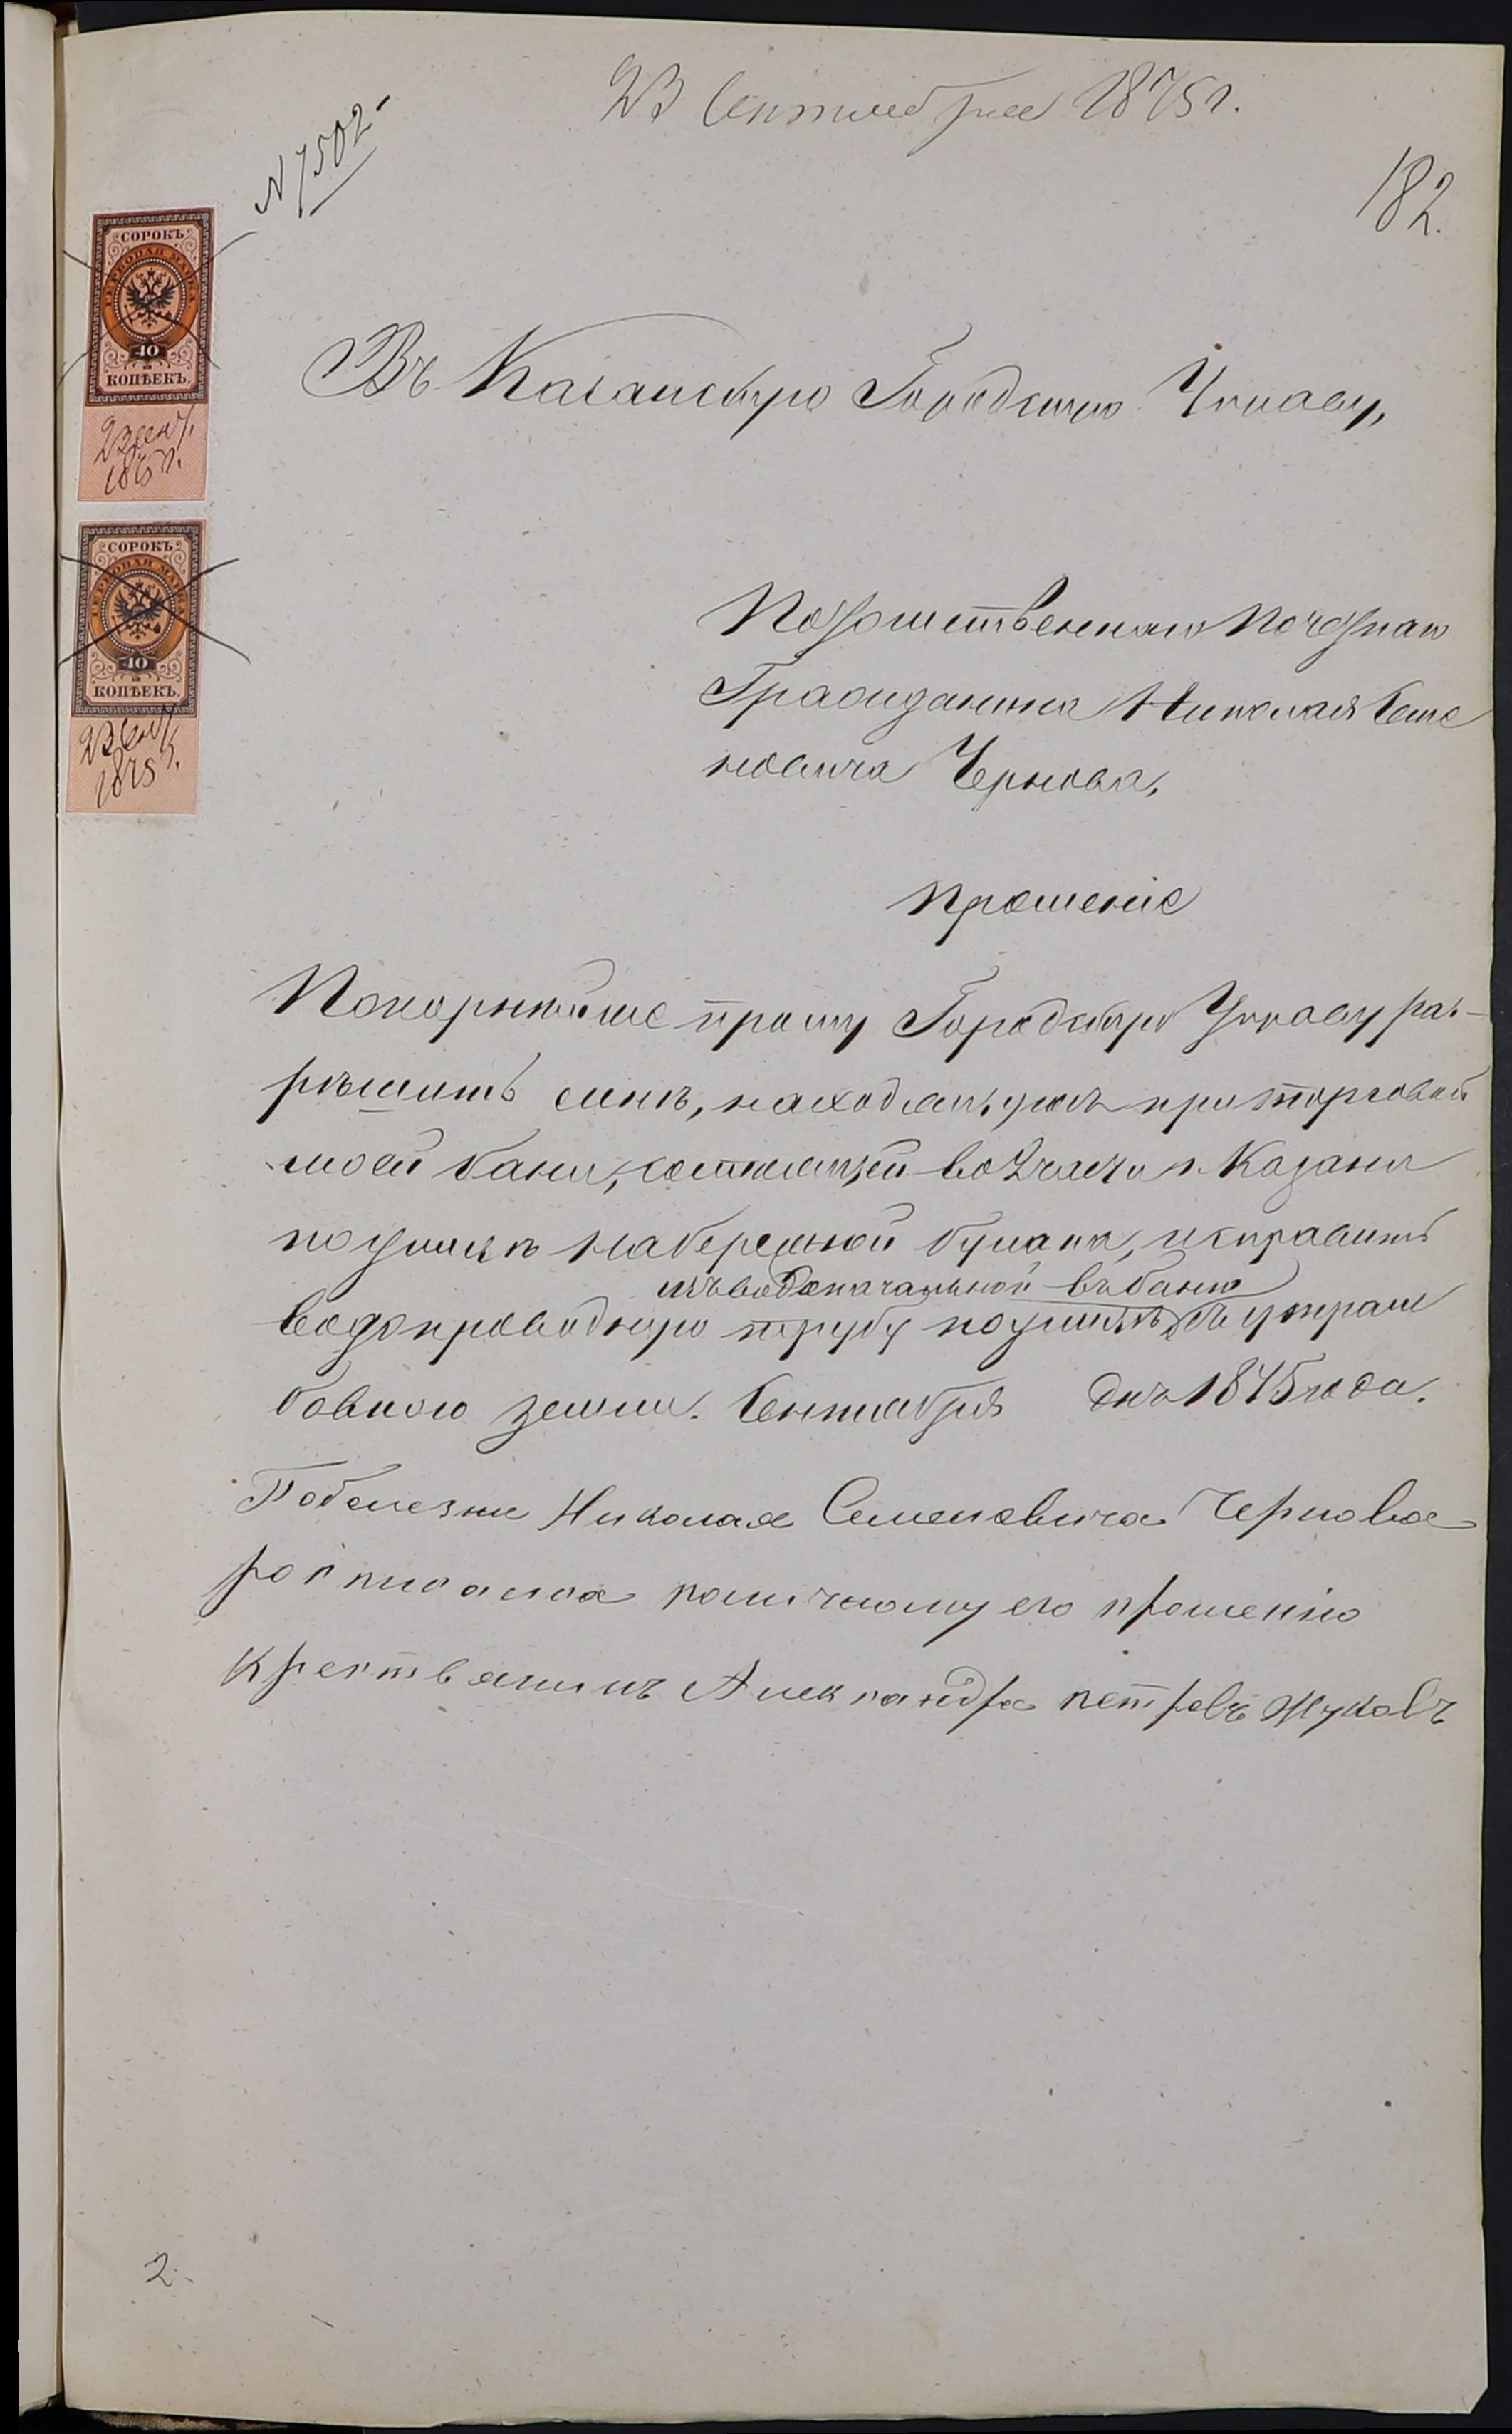 23 Сентября 1875 г.
№ 7502
182.
СОРОКЪ
ГЕРБОВАЯ МАРКА
40
КОПѢЕКЪ.
23 сент.
1875 г.
СОРОКЪ
ГЕРБОВАЯ МАРКА
40
КОПѢЕКЪ.
23 сент.
1875 г.
Въ Казанскую Городскую Управу,
Потомственнаго Почетнаго
Гражданина Николая Семе
новича Чернова,
Прошеніе
Покорнѣйше прошу Городскую Управу раз-
рѣшить мнѣ, находящуюся при торговой
моей бани, состоящей во 2 части г. Казани
по улицѣ набережной Булака, исправить
изъ водокачальной въ баню
водопроводную трубу по улицѣ съ утрам
бовкою земли. Сентября дня 1875 года.
По болезни Николая Семеновича Чернова
росписался по личному его прошенію
крестьянинъ Александра петровъ Жуковъ
2.